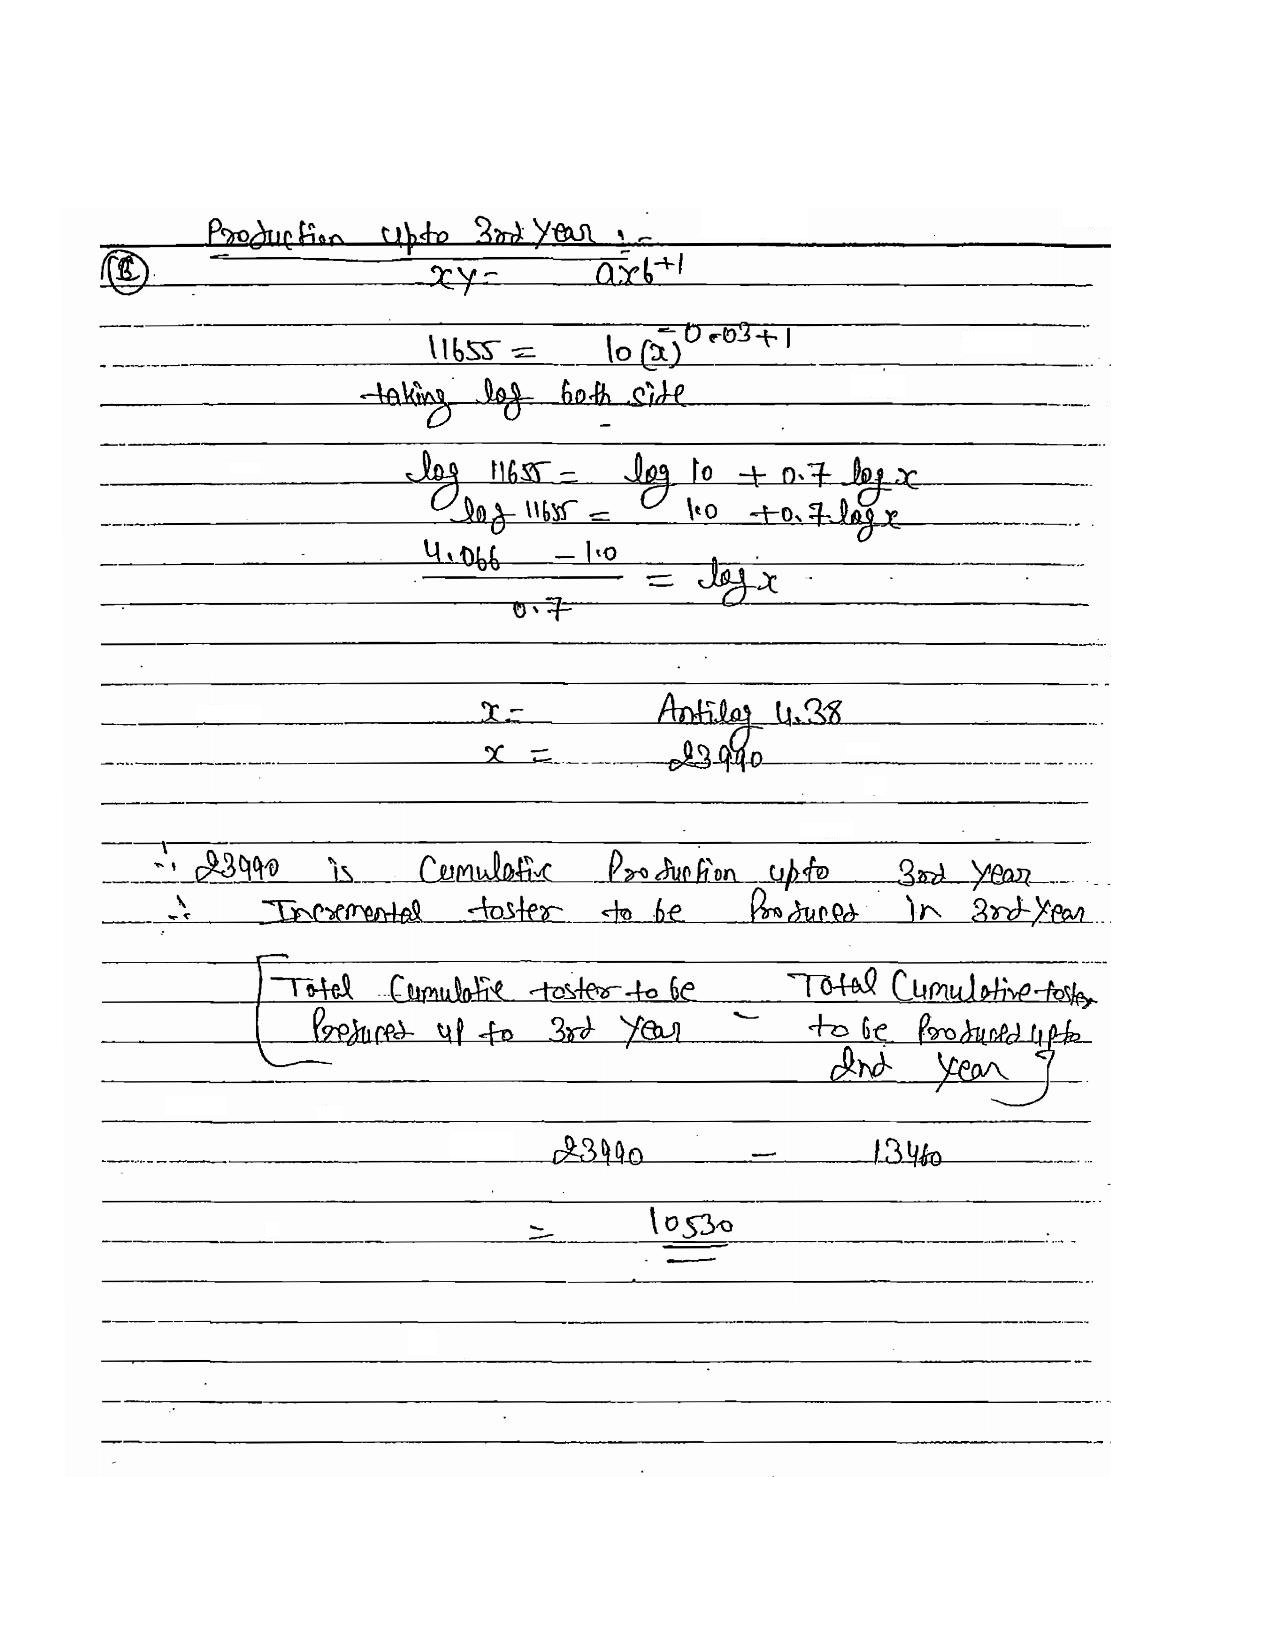 Production upto 3rd Year :-
B xy = axb+1
11655 = 10(x)-0.03+1
taking log both side
log 11655 = log 10 + 0.7 log x
log 11655 = 1.0 + 0.7 log x
4.066 - 1.0
= log x
0.7
x = Antilog 4.38
x = 23990
∴ 23990 is Cumulative Production upto 3rd Year
∴ Incremental toster to be Produced in 3rd Year
[Total Cumulative toster to be - Total Cumulative toster
Produced up to 3rd Year to be Produced upto
2nd Year]
23990 - 13460
= 10530